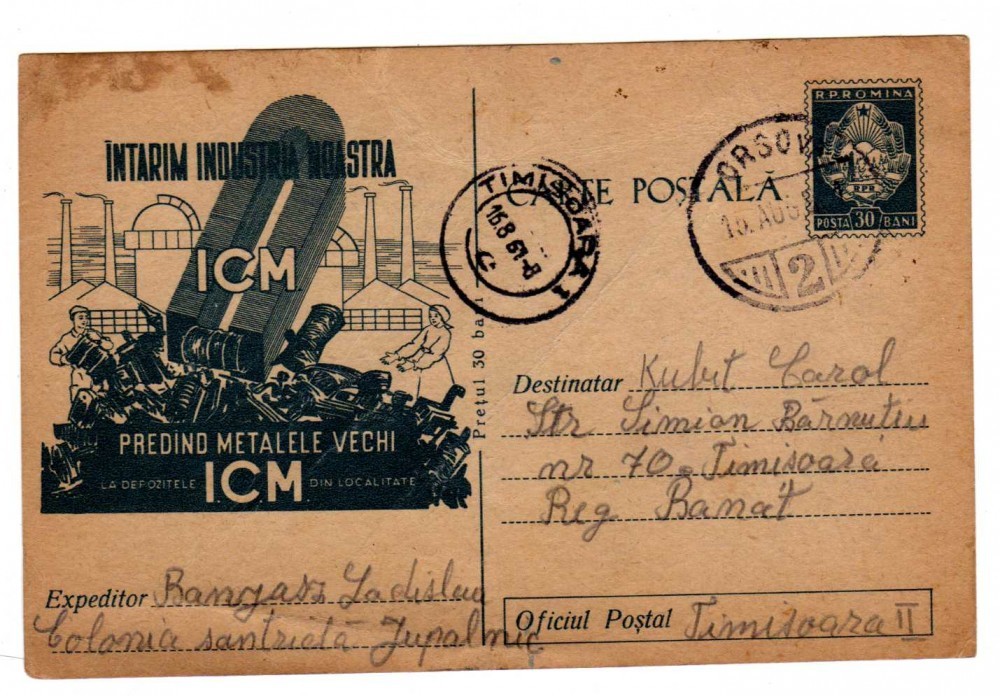 ÎNTARIM INDUSTRIA NOASTRA
I.C.M.
PREDIND METALELE VECHI
LA DEPOZITELE I.C.M. DIN LOCALITATE
Expeditor Bangasz Ladislau
Colonia santrietă Jupalnic
Prețul 30 bani
TIMIȘOARA 1
16.8 61-8
C
CARTE POȘTALĂ
ORSOVA
15. AUG
VII 2
R.P.ROMINA
RPR
POSTA 30 BANI
Destinatar Kubit Carol
Str Simion Bărnuțiu
nr 70. Timisoara
Reg Banat
Oficiul Poștal Timisoara II